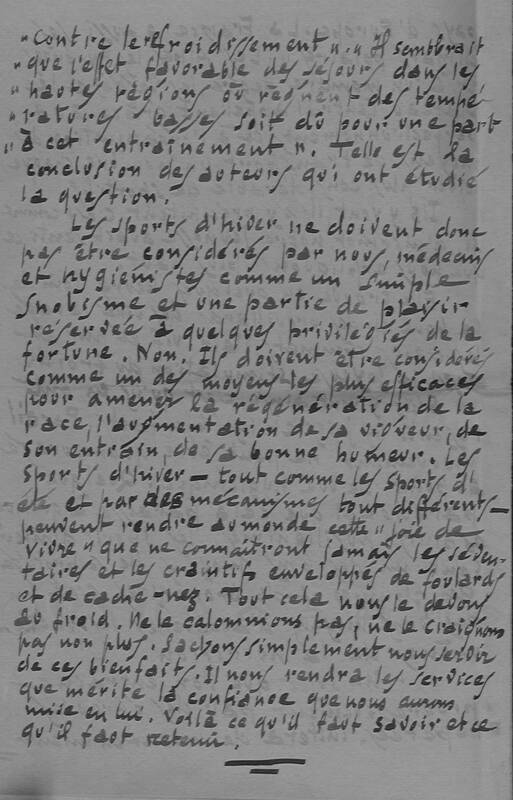 "Contre le refroidissement". "Il semblerait
"que l'effet favorable des séjours dans les
"hautes régions où règnent des tempé
"ratures basses soit dû pour une part
"à cet entraînement". Telle est la
conclusion des auteurs qui ont étudié
la question.
Les sports d'hiver ne doivent donc
pas être considérés par nous, médecins
et hygiénistes comme un simple
snobisme et une partie de plaisir
réservée à quelques privilégiés de la
fortune. Non. Ils doivent être considérés
comme un des moyens les plus efficaces
pour amener la régénération de la
race, l'augmentation de sa vigueur, de
son entrain, de sa bonne humeur. Les
sports d'hiver - tout comme les sports d'
été et par des mécanismes tout différents -
peuvent rendre au monde cette "joie de
vivre" que ne connaîtront jamais les séden-
taires et les craintifs enveloppés de foulards
et de cache-nez. Tout cela nous le devons
au froid. Ne le calomnions pas, ne le craignons
pas non plus. Sachons simplement nous servir
de ces bienfaits. Il nous rendra les services
que mérite la confiance que nous aurons
mise en lui. Voilà ce qu'il faut savoir et ce
qu'il faut retenir.